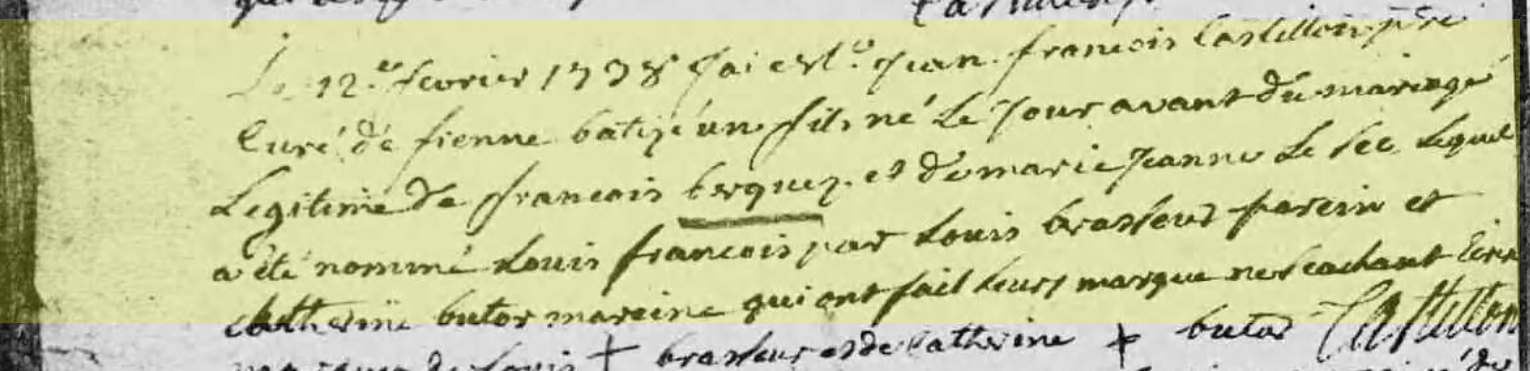 Le 12.e fevrier 1738 Jai Mt.e Jean francois Castillon ptre
Curé de fienne batisé un fils né Le Jour avant du mariage
Legitime de francois berquez. et de marie Jeanne Le sec Lequel
a été nommé Louis francois par Louis brasseur parein et
catherine butor mareine qui ont fait leurs marque ne scachant Ecrire
marques de Louis + brasseur et de Catherine + butor Castillon